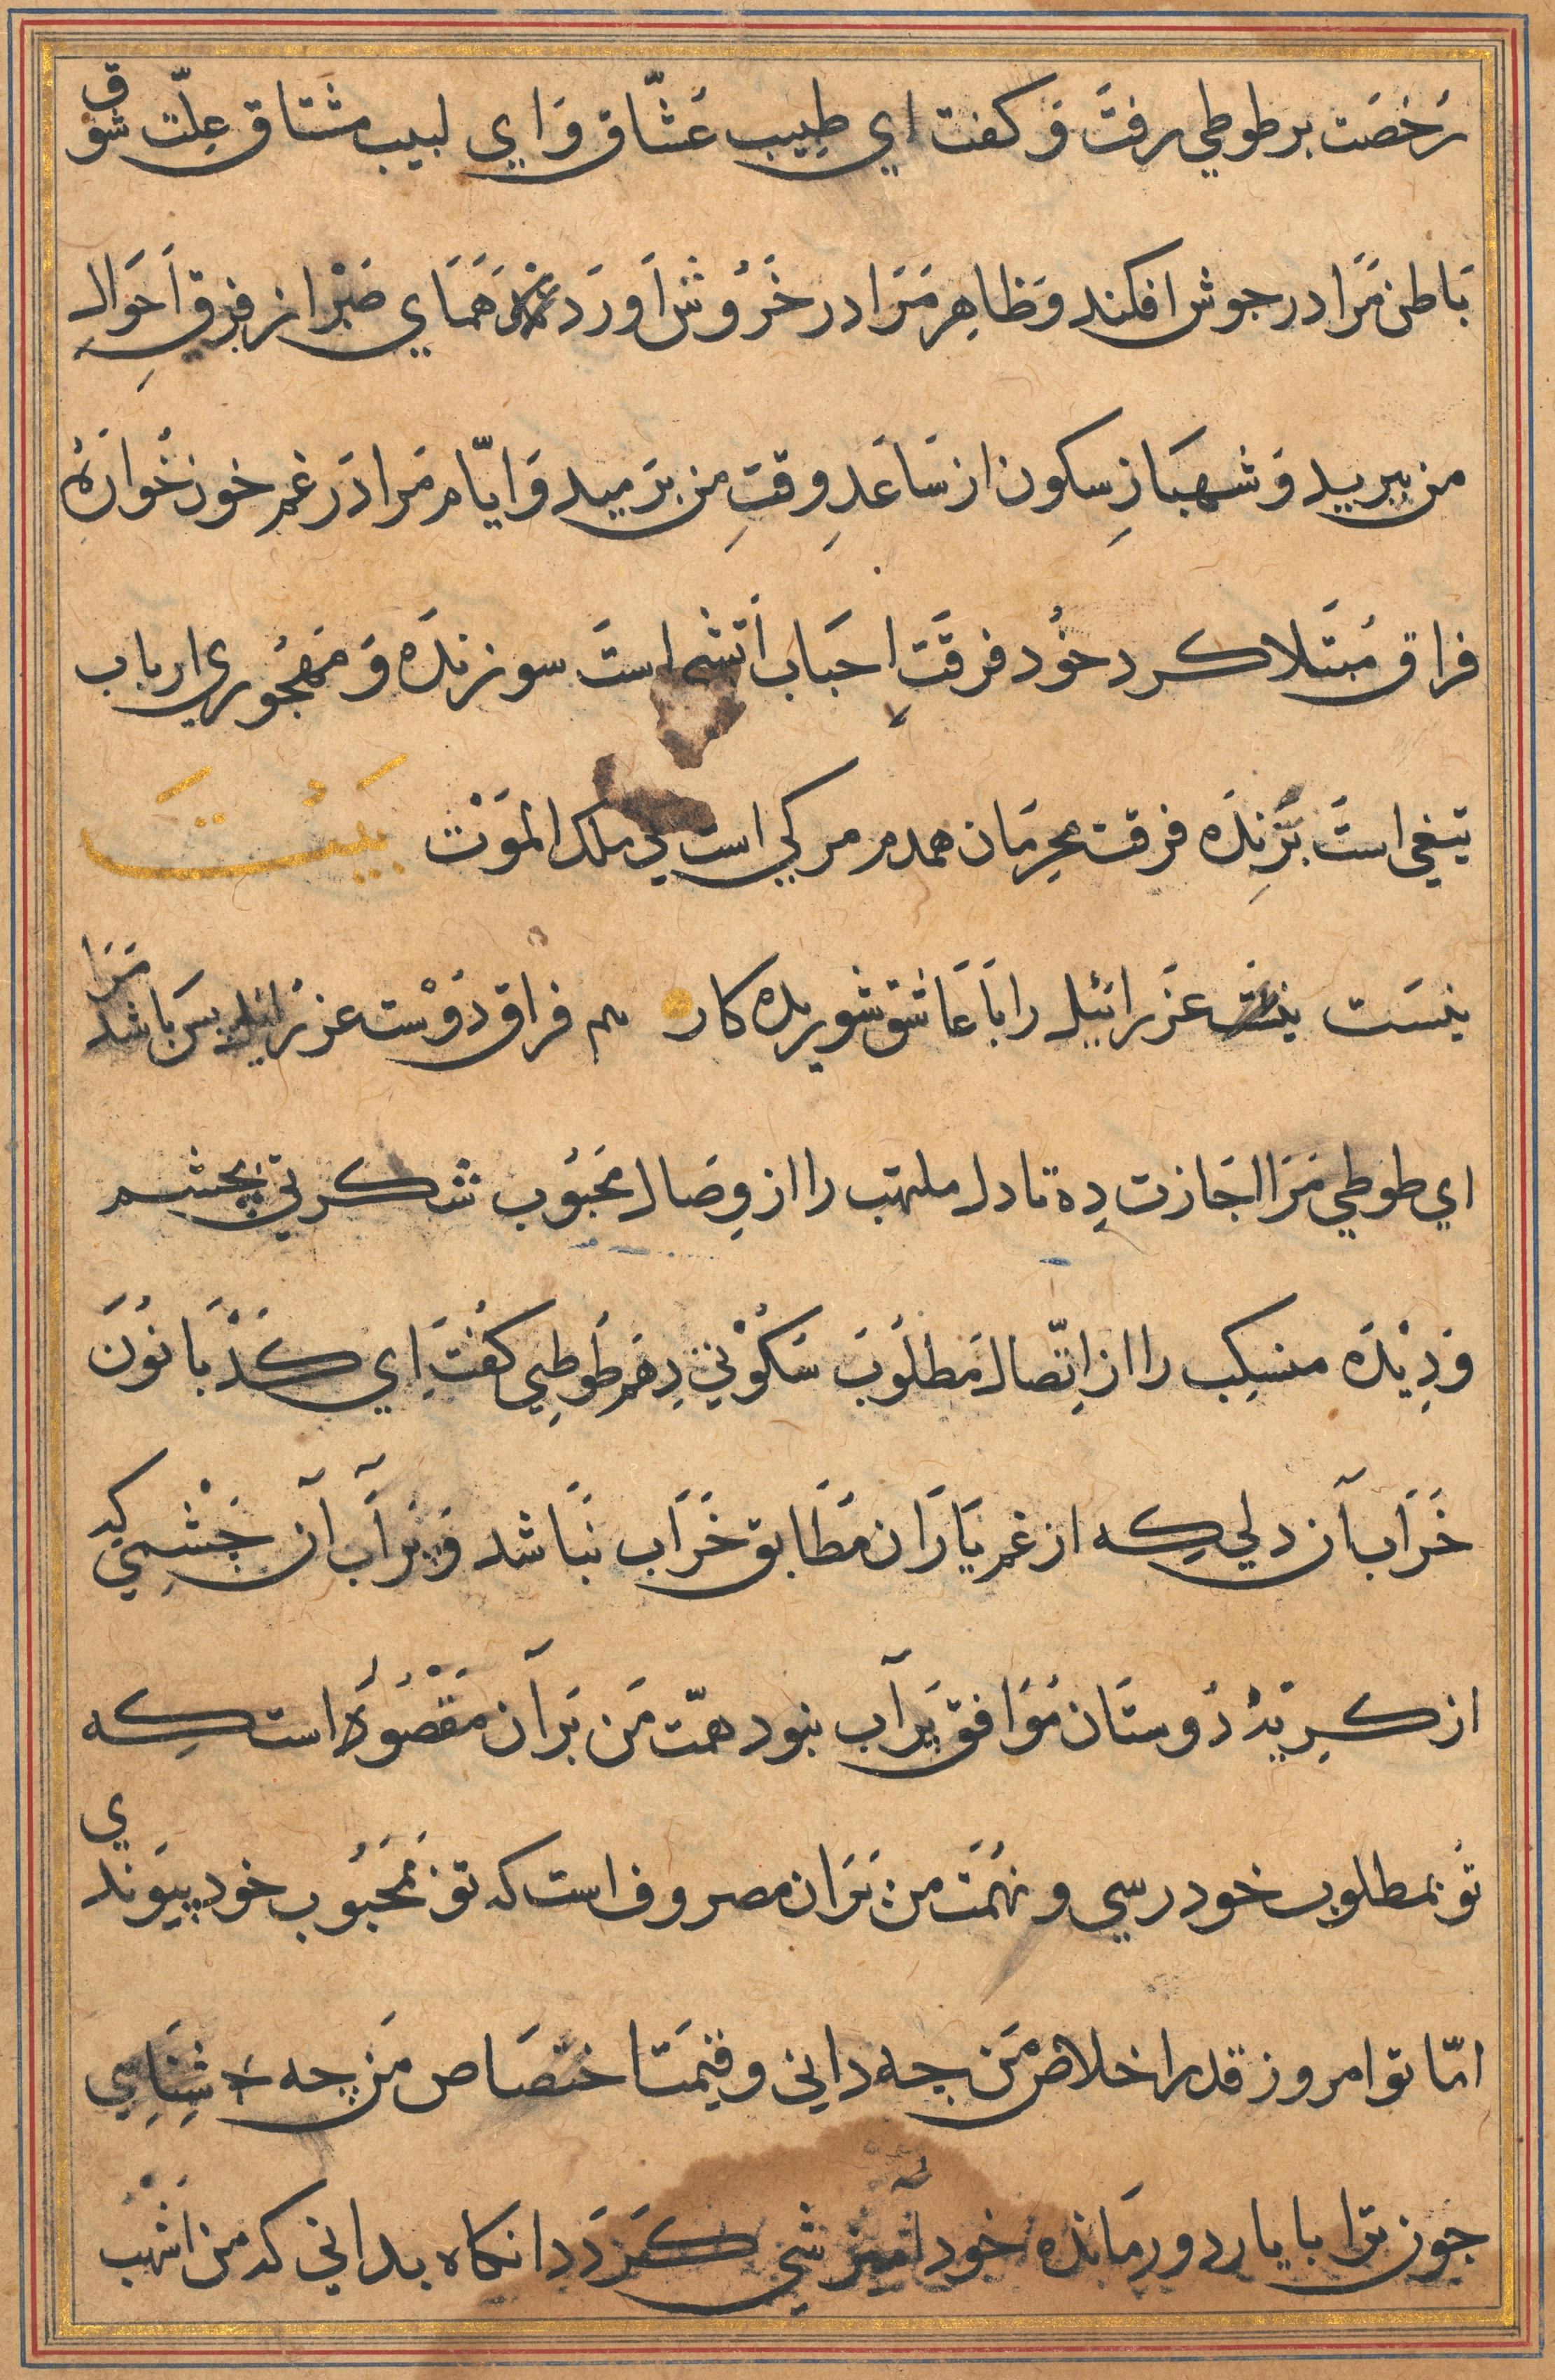 رخصت بر طوطي رفت و كفت اي طبيب عشّاق و اي لبيب مشتاق علّت شوق
باطن مرا در جوش افكند و ظاهر مرا در خروش اورد هماي صبر از فرق احوال
من ببريد و شهباز سكون از ساعد وقت من برميد و ايّام مرا در غم خون خواره
فراق مبتلا كرد خود فرقت احباب اتشي است سوزنده و مهجوري ارباب
تيغي است برنده فرقت محرمان همدم مركي است بي ملك الموت بيت
نيست عزرائيل را با عاشق شوريده كار هم فراق دوست عزرائيل بس باشد مرا
اي طوطي مرا اجازت ده تا دل ملتهب را از وصال محبوب شكر تي بچشم
و ديده منسكب را از اتّصال مطلوب سكوني دهم طوطي كفت اي كدبانو ن
خراب آن دلي كه از غم ياران مطابق خراب نباشد و پر آب آن چشمي كه
از كريه دوستان موافق پر آب نبود همّت من بر آن مقصوره است كه
تو بمطلوب خود رسي و نهمت من بران مصروف است كه تو بمحبوب خود پيوندي
امّا تو امروز قدر اخلاص من چه داني و قيمت اختصاص من چه شناسي
چون ترا با يار دور مانده خود آميزشي كردد انكاه بداني كه من اشهب